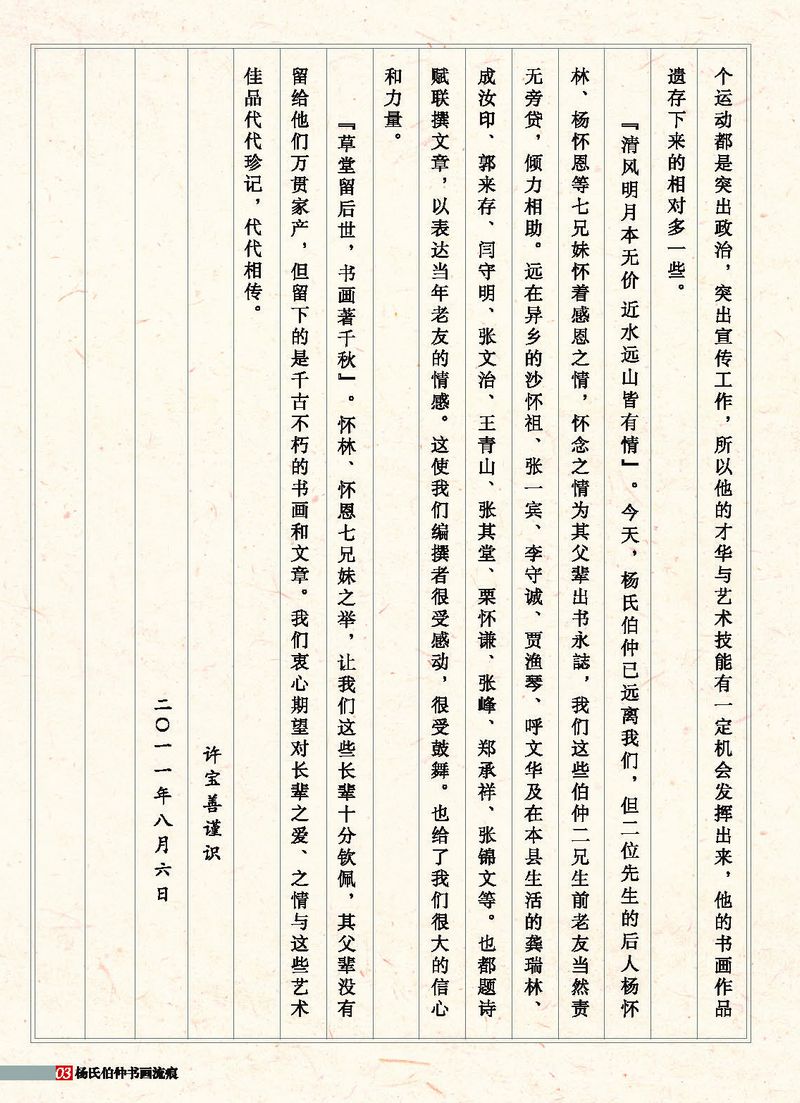 个运动都是突出政治，突出宣传工作，所以他的才华与艺术技能有一定机会发挥出来，他的书画作品
遗存下来的相对多一些。
『清风明月本无价 近水远山皆有情』。今天，杨氏伯仲已远离我们，但二位先生的后人杨怀
林、杨怀恩等七兄妹怀着感恩之情，怀念之情为其父辈出书永誌，我们这些伯仲二兄生前老友当然责
无旁贷，倾力相助。远在异乡的沙怀祖、张一宾、李守诚、贾渔琴、呼文华及在本县生活的龚瑞林、
成汝印、郭来存、闫守明、张文治、王青山、张其堂、栗怀谦、张峰、郑承祥、张锦文等。也都题诗
赋联撰文章，以表达当年老友的情感。这使我们编撰者很受感动，很受鼓舞。也给了我们很大的信心
和力量。
『草堂留后世，书画著千秋』。怀林、怀恩七兄妹之举，让我们这些长辈十分钦佩，其父辈没有
留给他们万贯家产，但留下的是千古不朽的书画和文章。我们衷心期望对长辈之爱、之情与这些艺术
佳品代代珍记，代代相传。
许宝善谨识
二〇一一年八月六日
03 杨氏伯仲书画流痕